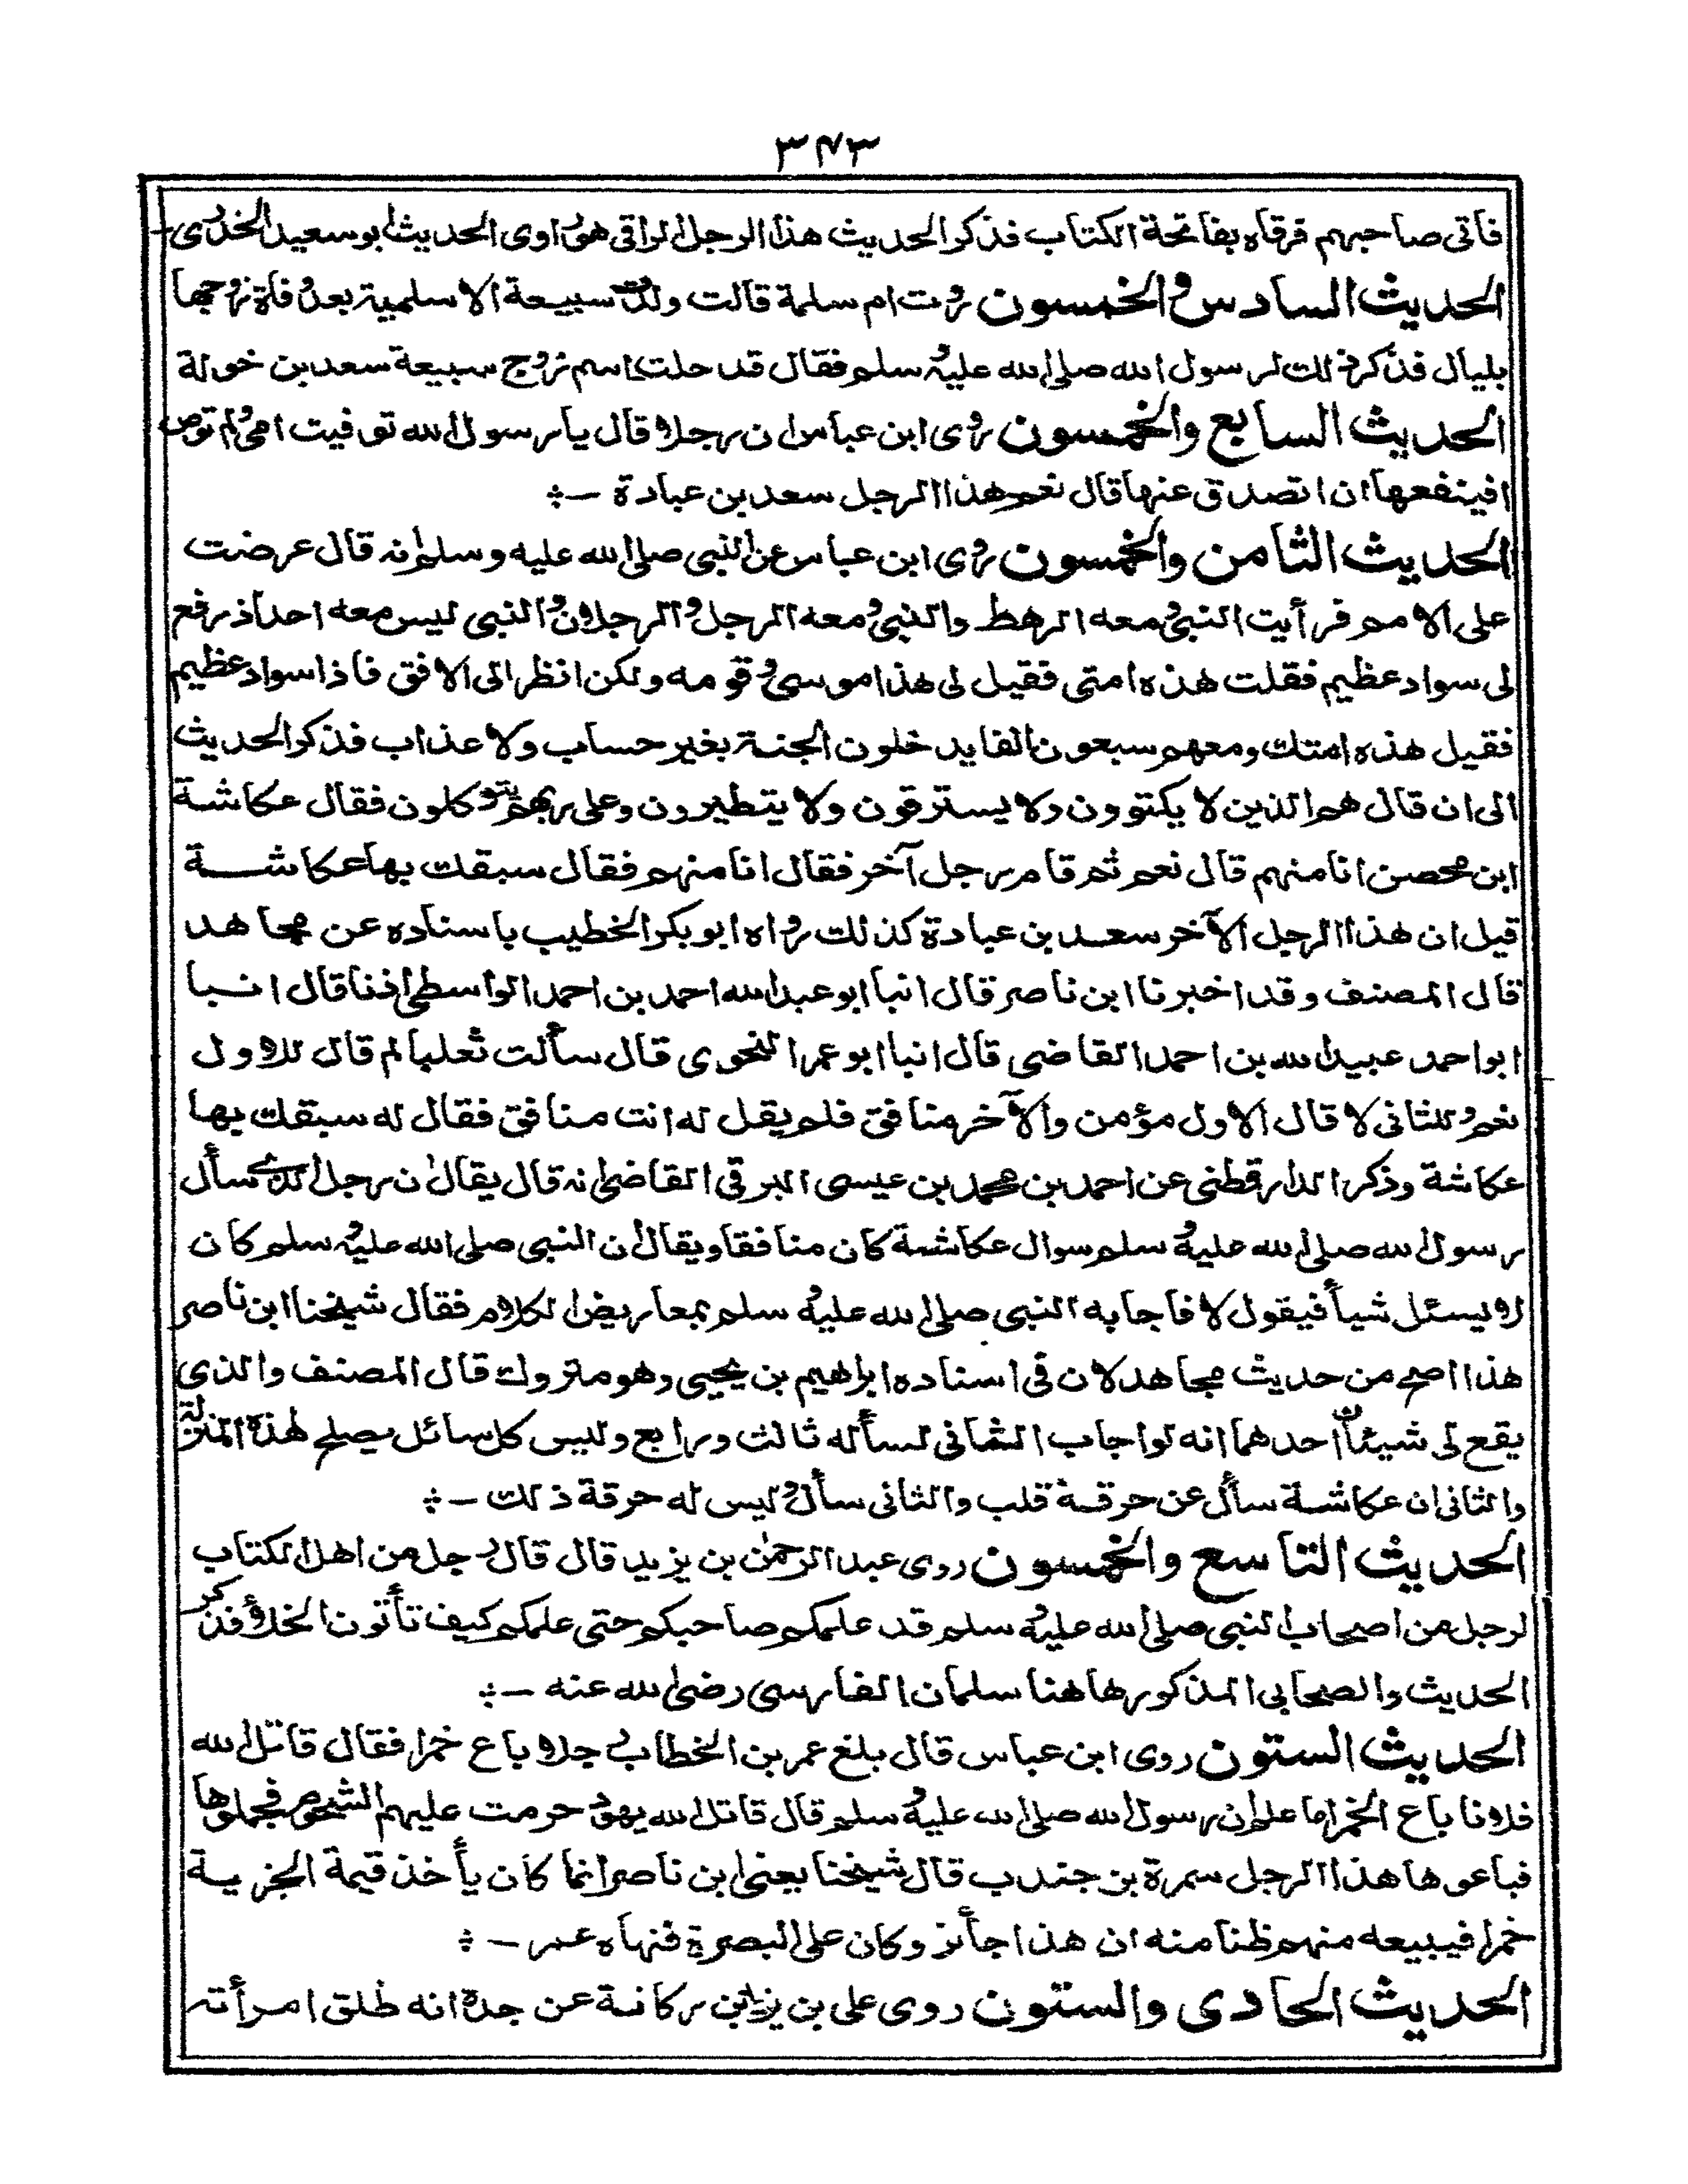 ٣٧٣
فأتى صاحبهم فرقاه بفاتحة الكتاب فذكر الحديث هذا الرجل الراقى هو راوى الحديث ابو سعيد الخدرى-
الحديث السادس والخمسون روت ام سلمة قالت ولدت سبيعة الاسلمية بعد وفاة زوجها
بليال فذكر ذلك لرسول الله صلى الله عليه وسلم فقال قد حلت اسم زوج سبيعة سعد بن خولة
الحديث السابع والخمسون روى ابن عباس ان رجلا قال يا رسول الله توفيت امى ولم توص
افينفعها ان اتصدق عنها قال نعم هذا الرجل سعد بن عبادة -
الحديث الثامن والخمسون روى ابن عباس عن النبى صلى الله عليه وسلم انه قال عرضت
على الامم فرأيت النبى ومعه الرهط والنبى ومعه الرجل والرجلان والنبى ليس معه احد اذ رفع
لى سواد عظيم فقلت هذه امتى فقيل لى هذا موسى وقومه ولكن انظر الى الافق فاذا سواد عظيم
فقيل هذه امتك ومعهم سبعون الفا يدخلون الجنة بغير حساب ولا عذاب فذكر الحديث
الى ان قال هم الذين لا يكتوون ولا يسترقون ولا يتطيرون وعلى ربهم يتوكلون فقال عكاشة
ابن محصن انا منهم قال نعم ثم قام رجل آخر فقال انا منهم فقال سبقك بها عكاشة
قيل ان هذا الرجل الآخر سعد بن عبادة كذلك رواه ابو بكر الخطيب باسناده عن مجاهد
قال المصنف وقد اخبرنا ابن ناصر قال انبا ابو عبد الله احمد بن احمد الواسطى اذنا قال انبا
ابو احمد عبيد الله بن احمد القاضى قال انبا ابو عمر النحوى قال سألت ثعلبا لم قال للاول
نعم وللثانى لا قال الاول مؤمن والآخر منافق فلم يقل له انت منافق فقال له سبقك بها
عكاشة وذكر الدارقطنى عن احمد بن محمد بن عيسى البرقى القاضى انه قال يقال ان رجل الذى سأل
رسول الله صلى الله عليه وسلم سوال عكاشة كان منافقا ويقال ان النبى صلى الله عليه وسلم كان
لا يسئل شيأ فيقول لا فاجابه النبى صلى الله عليه وسلم بمعاريض الكلام فقال شيخنا ابن ناصر
هذا اصح من حديث مجاهد لان فى اسناده ابراهيم بن يحيى وهو متروك قال المصنف والذى
يقع لى شيئان احدهما انه لو اجاب الثانى لسأله ثالث ورابع وليس كل سائل يصلح لهذه المنزلة
والثانى ان عكاشة سأل عن حرقة قلب والثانى سأل وليس له حرقة ذلك -
الحديث التاسع والخمسون روى عبد الرحمن بن يزيد قال قال رجل من اهل الكتاب
لرجل من اصحاب النبى صلى الله عليه وسلم قد علمكم صاحبكم حتى علمكم كيف تأتون الخلاء وذكر
الحديث والصحابى المذكور هاهنا سلمان الفارسى رضى الله عنه -
الحديث الستون روى ابن عباس قال بلغ عمر بن الخطاب رجلا باع خمرا فقال قاتل الله
فلانا باع الخمر اما علم ان رسول الله صلى الله عليه وسلم قال قاتل الله يهود حرمت عليهم الشحوم فجملوها
فباعوها هذا الرجل سمرة بن جندب قال شيخنا يعنى ابن ناصر انما كان يأخذ قيمة الجزية
خمرا فيبيعه منهم ظنا منه ان هذا جائز وكان على البصرة فنهاه عمر -
الحديث الحادى والستون روى على بن يزيد بن ركانة عن جده انه طلق امرأته